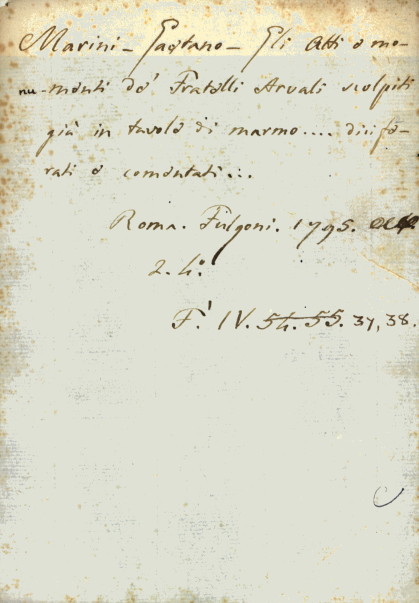 Marini - Gaetano - Gli Atti e mo-
nu-menti de' Fratelli Arvali scolpiti
già in tavole di marmo.... dicife-
rati e comentati...
Roma. Fulgoni. 1795.
2. 4.º
F.' IV. 54. 55. 37, 38.